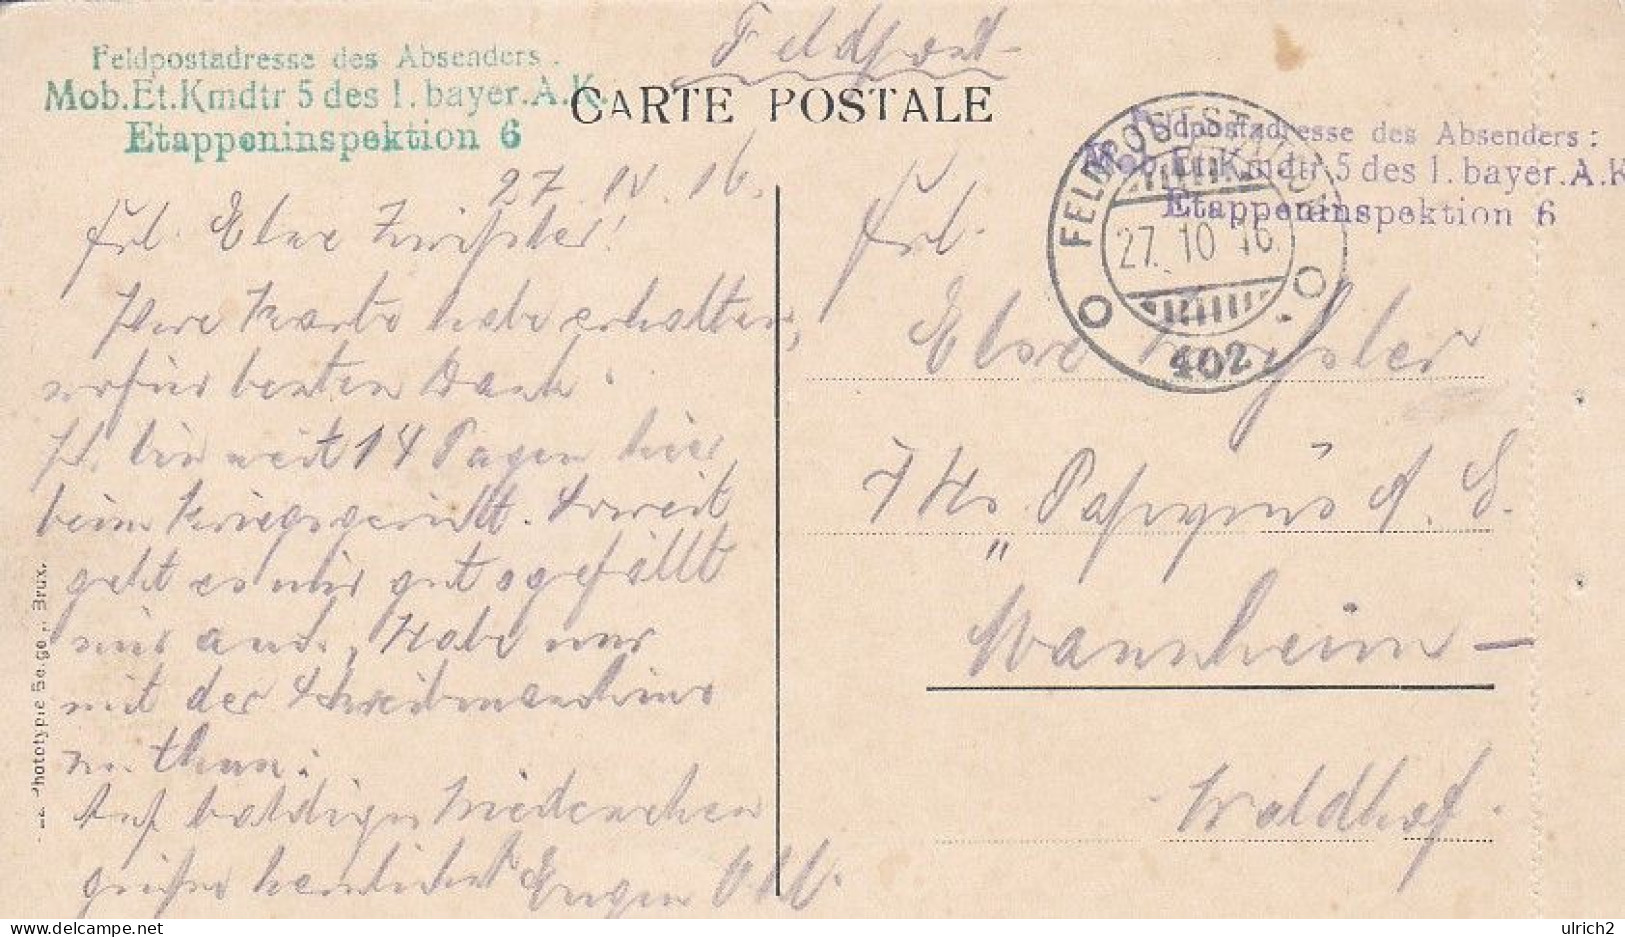 Feldpost
Feldpostadresse des Absenders:
Mob.Et.Kmdtr 5 des I. bayer.A.K.
Etappeninspektion 6
CARTE POSTALE
27. IV. 16.
Frl. Else
Ihre Karte habe erhalten,
wofür besten Dank.
Ich bin seit 14 Tagen hier
beim Kriegsgericht. Soweit
geht es mir gut & gefällt
mir auch. Habe nur
mit der Schreibmaschine
zu thun.
Auf baldiges Wiedersehen
grüßt herzlichst Eugen
Phototypie Belge, Brux.
FELDPOSTSTATION
27. 10 16.
402.
Feldpostadresse des Absenders:
Mob.Et.Kmdtr 5 des I. bayer.A.K
Etappeninspektion 6
Frl.
Else
Papyrus A. G.
Mannheim –
Waldhof.
ulrich2